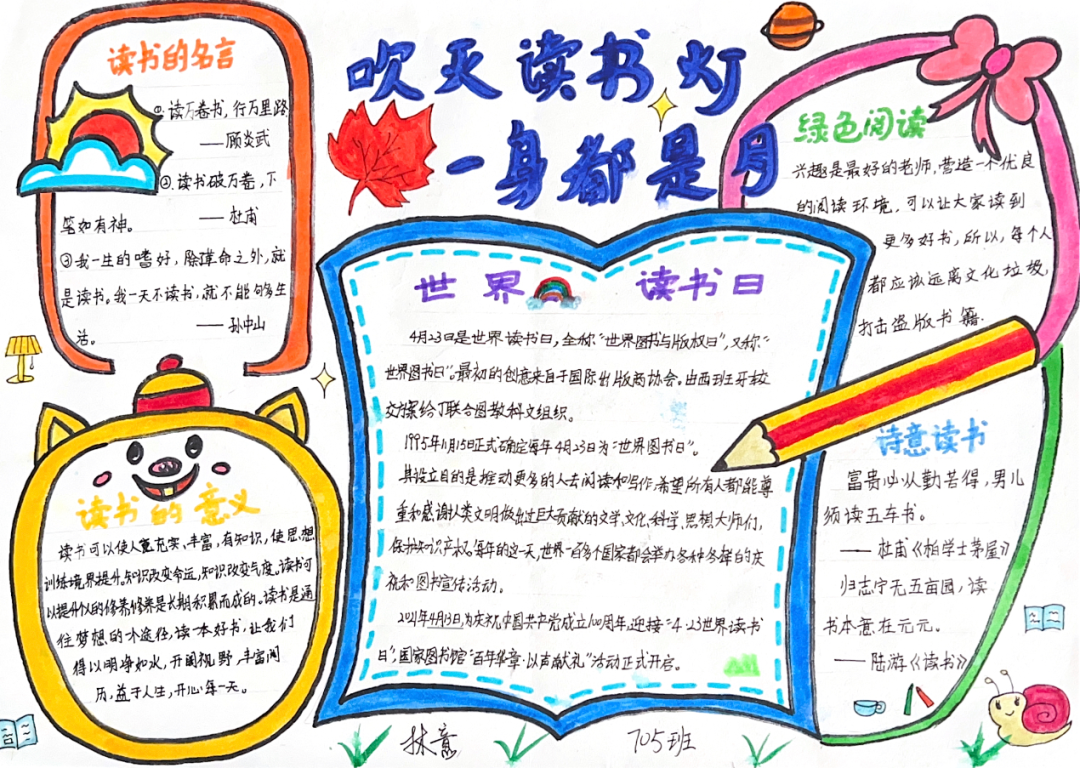 吹灭读书灯
一身都是月
读书的名言
①.读万卷书,行万里路
——顾炎武
②.读书破万卷,下
笔如有神。
——杜甫
③我一生的嗜好,除革命之外,就
是读书。我一天不读书,就不能够多生
活。
——孙中山
绿色阅读
兴趣是最好的老师,营造一个优良
的阅读环境,可以让大家读到
更多好书,所以,每个人
都应该远离文化垃圾,
打击盗版书籍.
世界读书日
4月23日是世界读书日,全称“世界图书与版权日”,又称“
世界图书日”。最初的创意来自于国际出版商协会。由西班牙
方案给了联合国教科文组织。
1995年11月15日正式确定每年4月23日为“世界图书日”。
其设立目的是推动更多的人去阅读和写作,希望所有人都能尊
重和感谢人类文明做出过巨大贡献的文学、文化、科学、思想大师们,
保护知识产权。每年的这一天,世界一百多个国家都会举办各种各样的庆
祝和图书宣传活动。
2021年4月13日,为庆祝中国共产党成立100周年,迎接“4·23世界读书
日”,国家图书馆“百年华章·以声献礼”活动正式开启。
读书的意义
读书可以使人充实,丰富,有知识,使思想
训练境界提升。知识改变命运,知识改变气度。读书可
以提升人的修养修养是长期积累而成的。读书是通
往梦想的一个途径,读一本好书,让我们
得以明净如水,开阔视野,丰富阅
历,益于人生,开心每一天。
诗意读书
富贵必从勤苦得,男儿
须读五车书。
——杜甫《柏学士茅屋》
归志宁无五亩园,读
书本意在元元。
——陆游《读书》
林意
705班